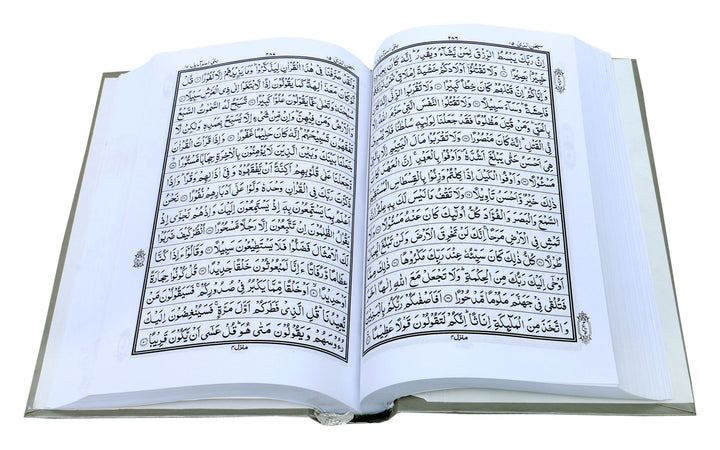 اِنَّ رَبَّكَ يَبْسُطُ الرِّزْقَ لِمَنْ يَّشَآءُ وَيَقْدِرُ ؕ اِنَّهٗ كَانَ بِعِبَادِهٖ
خَبِيْرًۢا بَصِيْرًا وَلَا تَقْتُلُوْۤا اَوْلَادَكُمْ خَشْيَةَ اِمْلَاقٍ ؕ نَحْنُ نَرْزُقُهُمْ
وَاِيَّاكُمْ ؕ اِنَّ قَتْلَهُمْ كَانَ خِطْاً كَبِيْرًا وَلَا تَقْرَبُوا الزِّنٰۤى اِنَّهٗ كَانَ
فَاحِشَةً ؕ وَسَآءَ سَبِيْلًا وَلَا تَقْتُلُوا النَّفْسَ الَّتِيْ حَرَّمَ اللّٰهُ اِلَّا
بِالْحَقِّ ؕ وَمَنْ قُتِلَ مَظْلُوْمًا فَقَدْ جَعَلْنَا لِوَلِيِّهٖ سُلْطٰنًا فَلَا يُسْرِفْ فِّى
الْقَتْلِ ؕ اِنَّهٗ كَانَ مَنْصُوْرًا وَلَا تَقْرَبُوْا مَالَ الْيَتِيْمِ اِلَّا بِالَّتِيْ
هِيَ اَحْسَنُ حَتّٰى يَبْلُغَ اَشُدَّهٗ ۪ وَاَوْفُوْا بِالْعَهْدِ ۚ اِنَّ الْعَهْدَ كَانَ
مَسْئُوْلًا وَاَوْفُوا الْكَيْلَ اِذَا كِلْتُمْ وَزِنُوْا بِالْقِسْطَاسِ الْمُسْتَقِيْمِ ؕ
ذٰلِكَ خَيْرٌ وَّاَحْسَنُ تَاْوِيْلًا وَلَا تَقْفُ مَا لَيْسَ لَكَ بِهٖ عِلْمٌ ؕ اِنَّ
السَّمْعَ وَالْبَصَرَ وَالْفُؤَادَ كُلُّ اُولٰٓئِكَ كَانَ عَنْهُ مَسْئُوْلًا وَلَا
تَمْشِ فِى الْاَرْضِ مَرَحًا ۚ اِنَّكَ لَنْ تَخْرِقَ الْاَرْضَ وَلَنْ تَبْلُغَ الْجِبَالَ
طُوْلًا كُلُّ ذٰلِكَ كَانَ سَيِّئُهٗ عِنْدَ رَبِّكَ مَكْرُوْهًا ذٰلِكَ مِمَّاۤ
اَوْحٰۤى اِلَيْكَ رَبُّكَ مِنَ الْحِكْمَةِ ؕ وَلَا تَجْعَلْ مَعَ اللّٰهِ اِلٰهًا اٰخَرَ
فَتُلْقٰى فِيْ جَهَنَّمَ مَلُوْمًا مَّدْحُوْرًا اَفَاَصْفٰىكُمْ رَبُّكُمْ بِالْبَنِيْنَ
وَاتَّخَذَ مِنَ الْمَلٰٓئِكَةِ اِنَاثًا ؕ اِنَّكُمْ لَتَقُوْلُوْنَ قَوْلًا عَظِيْمًا
منزل ٤
وَلَقَدْ صَرَّفْنَا فِيْ هٰذَا الْقُرْاٰنِ لِيَذَّكَّرُوْا ؕ وَمَا يَزِيْدُهُمْ اِلَّا نُفُوْرًا قُلْ
لَّوْ كَانَ مَعَهٗۤ اٰلِهَةٌ كَمَا يَقُوْلُوْنَ اِذًا لَّابْتَغَوْا اِلٰى ذِى الْعَرْشِ سَبِيْلًا
سُبْحٰنَهٗ وَتَعٰلٰى عَمَّا يَقُوْلُوْنَ عُلُوًّا كَبِيْرًا تُسَبِّحُ لَهُ السَّمٰوٰتُ السَّبْعُ
وَالْاَرْضُ وَمَنْ فِيْهِنَّ ؕ وَاِنْ مِّنْ شَيْءٍ اِلَّا يُسَبِّحُ بِحَمْدِهٖ وَلٰكِنْ لَّا
تَفْقَهُوْنَ تَسْبِيْحَهُمْ ؕ اِنَّهٗ كَانَ حَلِيْمًا غَفُوْرًا وَاِذَا قَرَاْتَ الْقُرْاٰنَ
جَعَلْنَا بَيْنَكَ وَبَيْنَ الَّذِيْنَ لَا يُؤْمِنُوْنَ بِالْاٰخِرَةِ حِجَابًا مَّسْتُوْرًا
وَّجَعَلْنَا عَلٰى قُلُوْبِهِمْ اَكِنَّةً اَنْ يَّفْقَهُوْهُ وَفِيْۤ اٰذَانِهِمْ وَقْرًا ؕ وَاِذَا
ذَكَرْتَ رَبَّكَ فِى الْقُرْاٰنِ وَحْدَهٗ وَلَّوْا عَلٰۤى اَدْبَارِهِمْ نُفُوْرًا نَحْنُ
اَعْلَمُ بِمَا يَسْتَمِعُوْنَ بِهٖۤ اِذْ يَسْتَمِعُوْنَ اِلَيْكَ وَاِذْ هُمْ نَجْوٰۤى اِذْ
يَقُوْلُ الظّٰلِمُوْنَ اِنْ تَتَّبِعُوْنَ اِلَّا رَجُلًا مَّسْحُوْرًا اُنْظُرْ كَيْفَ ضَرَبُوْا
لَكَ الْاَمْثَالَ فَضَلُّوْا فَلَا يَسْتَطِيْعُوْنَ سَبِيْلًا وَقَالُوْۤا ءَاِذَا كُنَّا
عِظَامًا وَّرُفَاتًا ءَاِنَّا لَمَبْعُوْثُوْنَ خَلْقًا جَدِيْدًا قُلْ كُوْنُوْا حِجَارَةً
اَوْ حَدِيْدًا اَوْ خَلْقًا مِّمَّا يَكْبُرُ فِيْ صُدُوْرِكُمْ ۚ فَسَيَقُوْلُوْنَ مَنْ
يُّعِيْدُنَا ؕ قُلِ الَّذِيْ فَطَرَكُمْ اَوَّلَ مَرَّةٍ ۚ فَسَيُنْغِضُوْنَ اِلَيْكَ
رُءُوْسَهُمْ وَيَقُوْلُوْنَ مَتٰى هُوَ ؕ قُلْ عَسٰۤى اَنْ يَّكُوْنَ قَرِيْبًا
منزل ٤